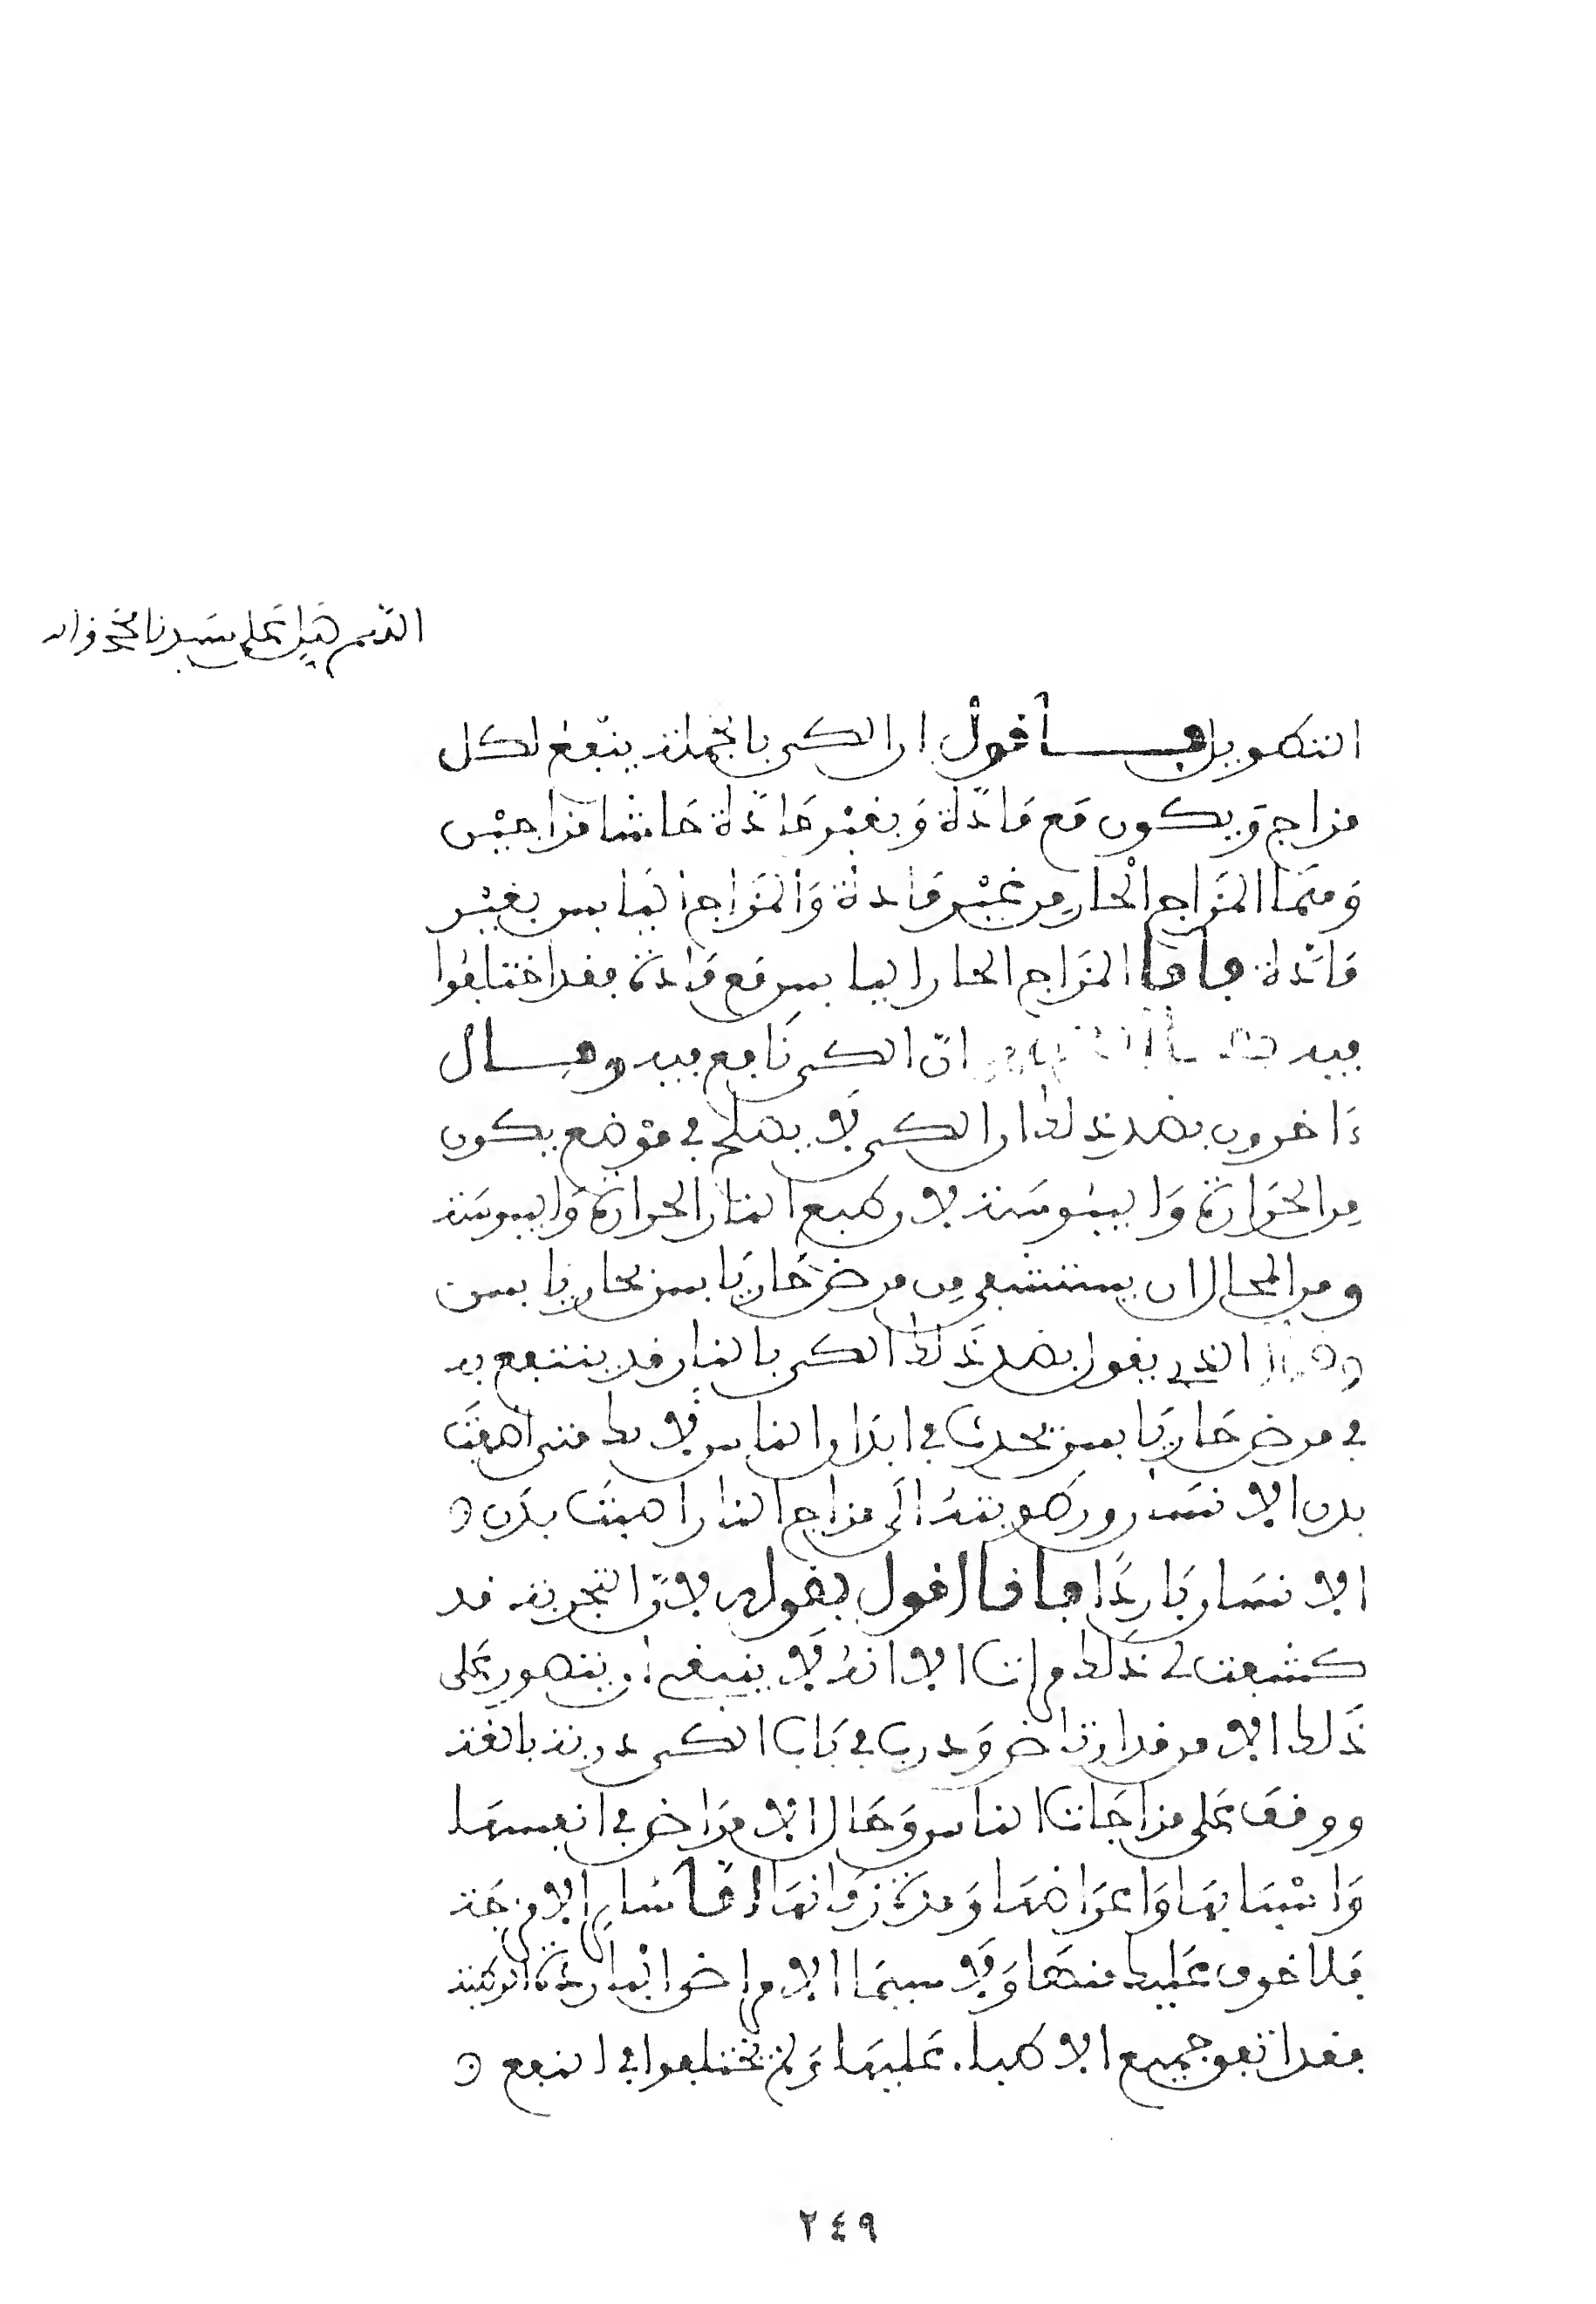 اللهم صل على سيدنا محمد وآله
التطويل فأقول إن الكي بالجملة ينفع لكل
مزاج ويكون مع مادة وبغير مادة حاشا مزاجين
وهما المزاج الحار من غير مادة والمزاج اليابس بغير
مادة فأما المزاج الحار اليابس مع مادة فقد اختلفوا
فيه إنّ الكي نافع فيه وقال
ءاخرون بضد ذلك إن الكي لا يصلح في موضع يكون
من الحرارة واليبوسة لأن طبع النار الحرارة واليبوسة
ومن المحال أن يستشفى من مرض حار يابس بحار يابس
وقال الذي يقول بضد ذلك الكي بالنار قد ينتفع به
في مرض حار يابس يحدث في أبدان الناس لأنك متى أضفت
بدن الإنسان ورطوبته إلى مزاج النار أصبت بدن
الإنسان باردًا فأنا أقول بقوله لأنّ التجربة قد
كشفت لي ذلك مرات إلا أنه لا ينبغي أن يتصور على
ذلك الأمر قد ارتاض ودرب في باب الكي دربة بالغة
ووقف على مزاجات الناس وحال الأمراض في أنفسها
وأسبابها وأعراضها ومدة زمانها أمّا سائر الأمزجة
فلا خوف عليك منها ولا سيما الأمراض الباردة الرطبة
فقد اتفق جميع الأطباء عليها ولم يختلفوا في النفع
٢٤٩